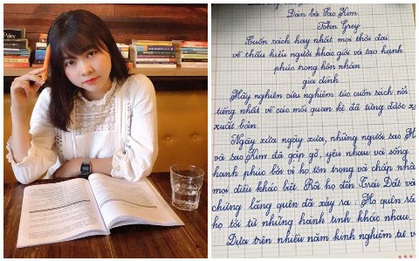 Đàn bà Sao Kim
John Grey
Cuốn sách hay nhất mọi thời đại
về thấu hiểu người khác giới và tạo hạnh
phúc trong hôn nhân
gia đình
Hãy nghiên cứu nghiêm túc cuốn sách nổi
tiếng nhất về các mối quan hệ đã từng được
xuất bản.
Ngày xửa ngày xưa, những người sao H
và sao Kim đã gặp gỡ, yêu nhau và sống
hạnh phúc bởi vì họ tôn trọng và chấp nhậ
mọi điều khác biệt. Rồi họ đến Trái Đất và
chứng lãng quên đã xảy ra. Họ quên rằ
họ tới từ những hành tinh khác nhau.
Dựa trên nhiều năm kinh nghiệm tư v